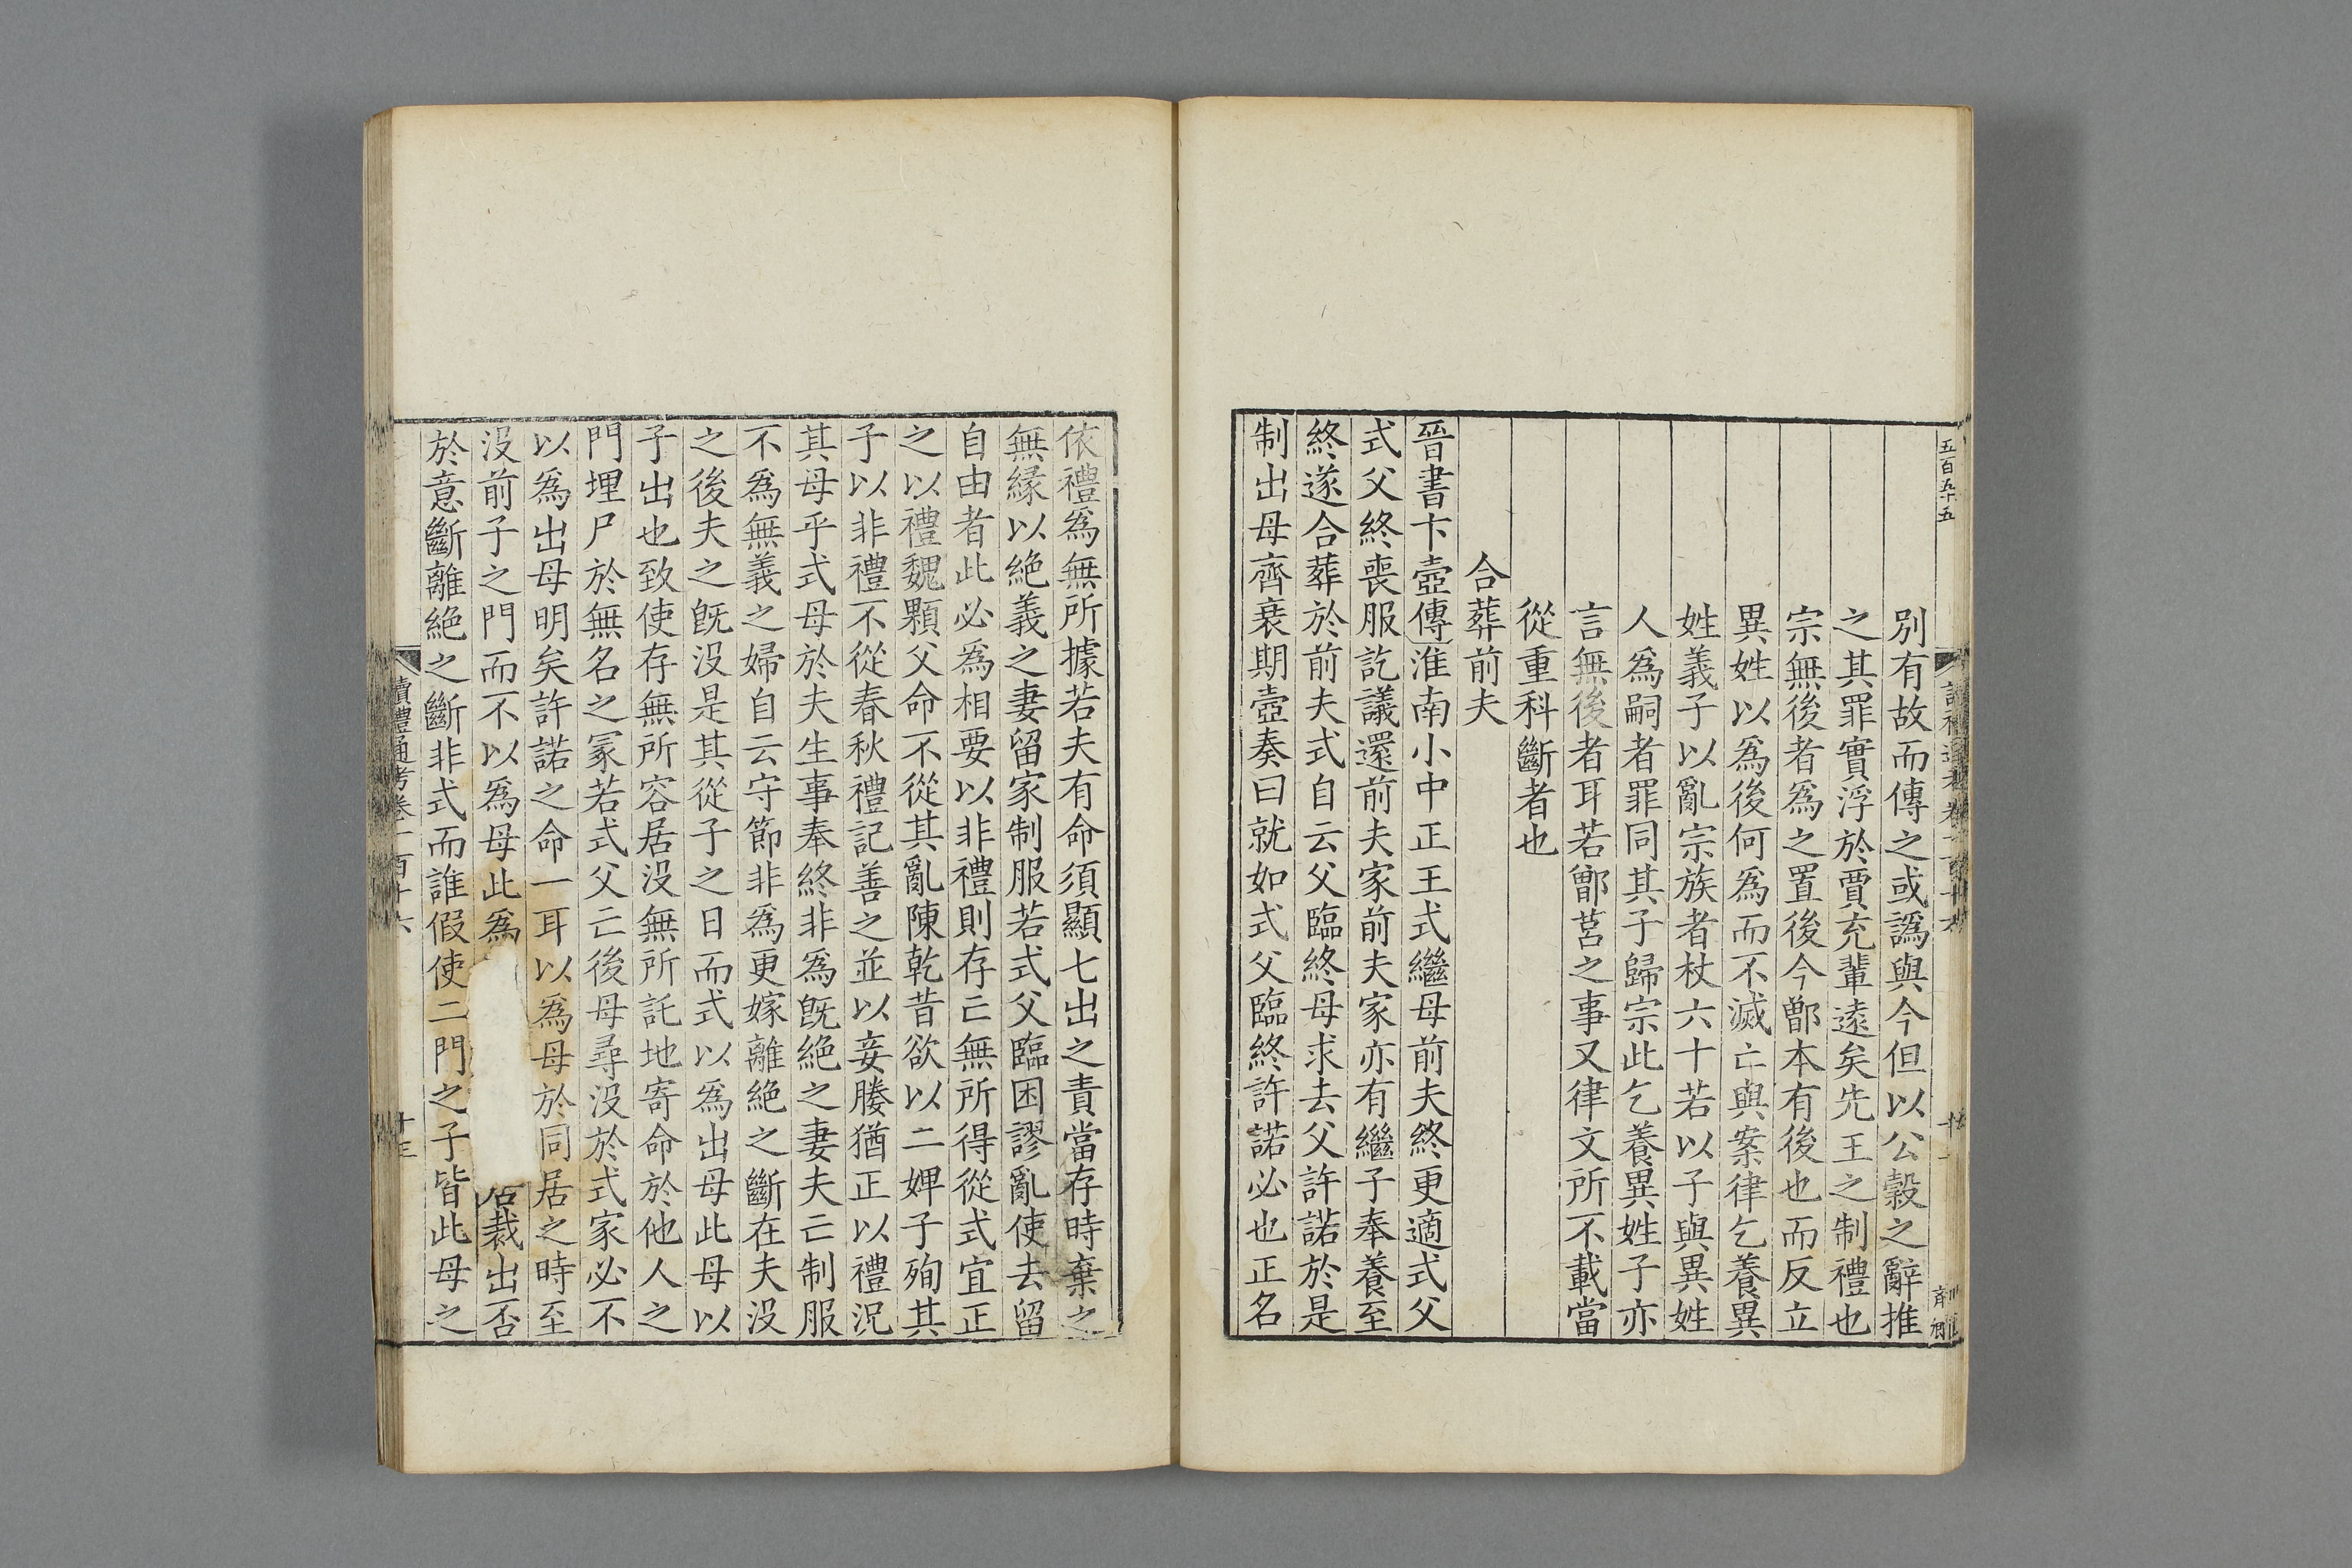 別有故而傳之或譌與今但以公穀之辭推
之其罪實浮於賈充輩遠矣先王之制禮也
宗無後者為之置後今鄫本有後也而反立
異姓以為後何為而不滅亡與案律乞養異
姓義子以亂宗族者杖六十若以子與異姓
人為嗣者罪同其子歸宗此乞養異姓子亦
言無後者耳若鄫莒之事又律文所不載當
從重科斷者也
合葬前夫
晉書卞壼傳淮南小中正王式繼母前夫終更適式父
式父終喪服訖議還前夫家前夫家亦有繼子奉養至
終遂合葬於前夫式自云父臨終母求去父許諾於是
制出母齊衰期壼奏曰就如式父臨終許諾必也正名
依禮為無所據若夫有命須顯七出之責當存時棄之
無緣以絕義之妻留家制服若式父臨困謬亂使去留
自由者此必為相要以非禮則存亡無所得從式宜正
之以禮魏顆父命不從其亂陳乾昔欲以二婢子殉其
子以非禮不從春秋禮記善之並以妾媵猶正以禮況
其母乎式母於夫生事奉終非為既絕之妻夫亡制服
不為無義之婦自云守節非為更嫁離絕之斷在夫沒
之後夫之既沒是其從子之日而式以為出母此母以
子出也致使存無所容居沒無所託地寄命於他人之
門埋尸於無名之冢若式父亡後母尋沒於式家必不
以為出母明矣許諾之命一耳以為母於同居之時至
沒前子之門而不以為母此為裁出否
於意斷離絕之斷非式而誰假使二門之子皆此母之
讀禮通考卷一百十六
十三